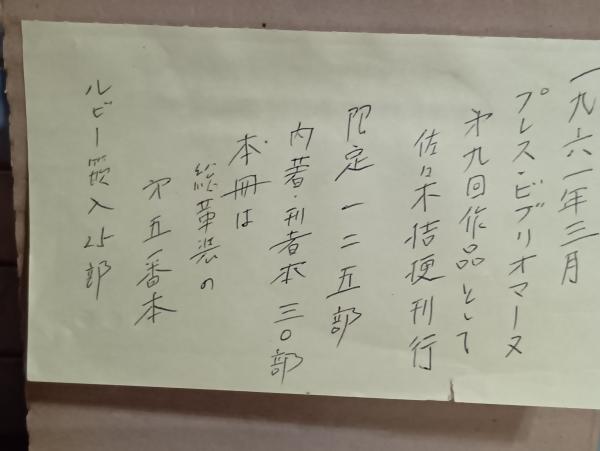 一九六一年三月
プレス・ビブリオマーヌ
オ九回作品として
佐々木桔梗刊行
限定一二五部
内著・刊者本三〇部
本冊は
総革装の
オ五一番本
ルビー嵌入25部